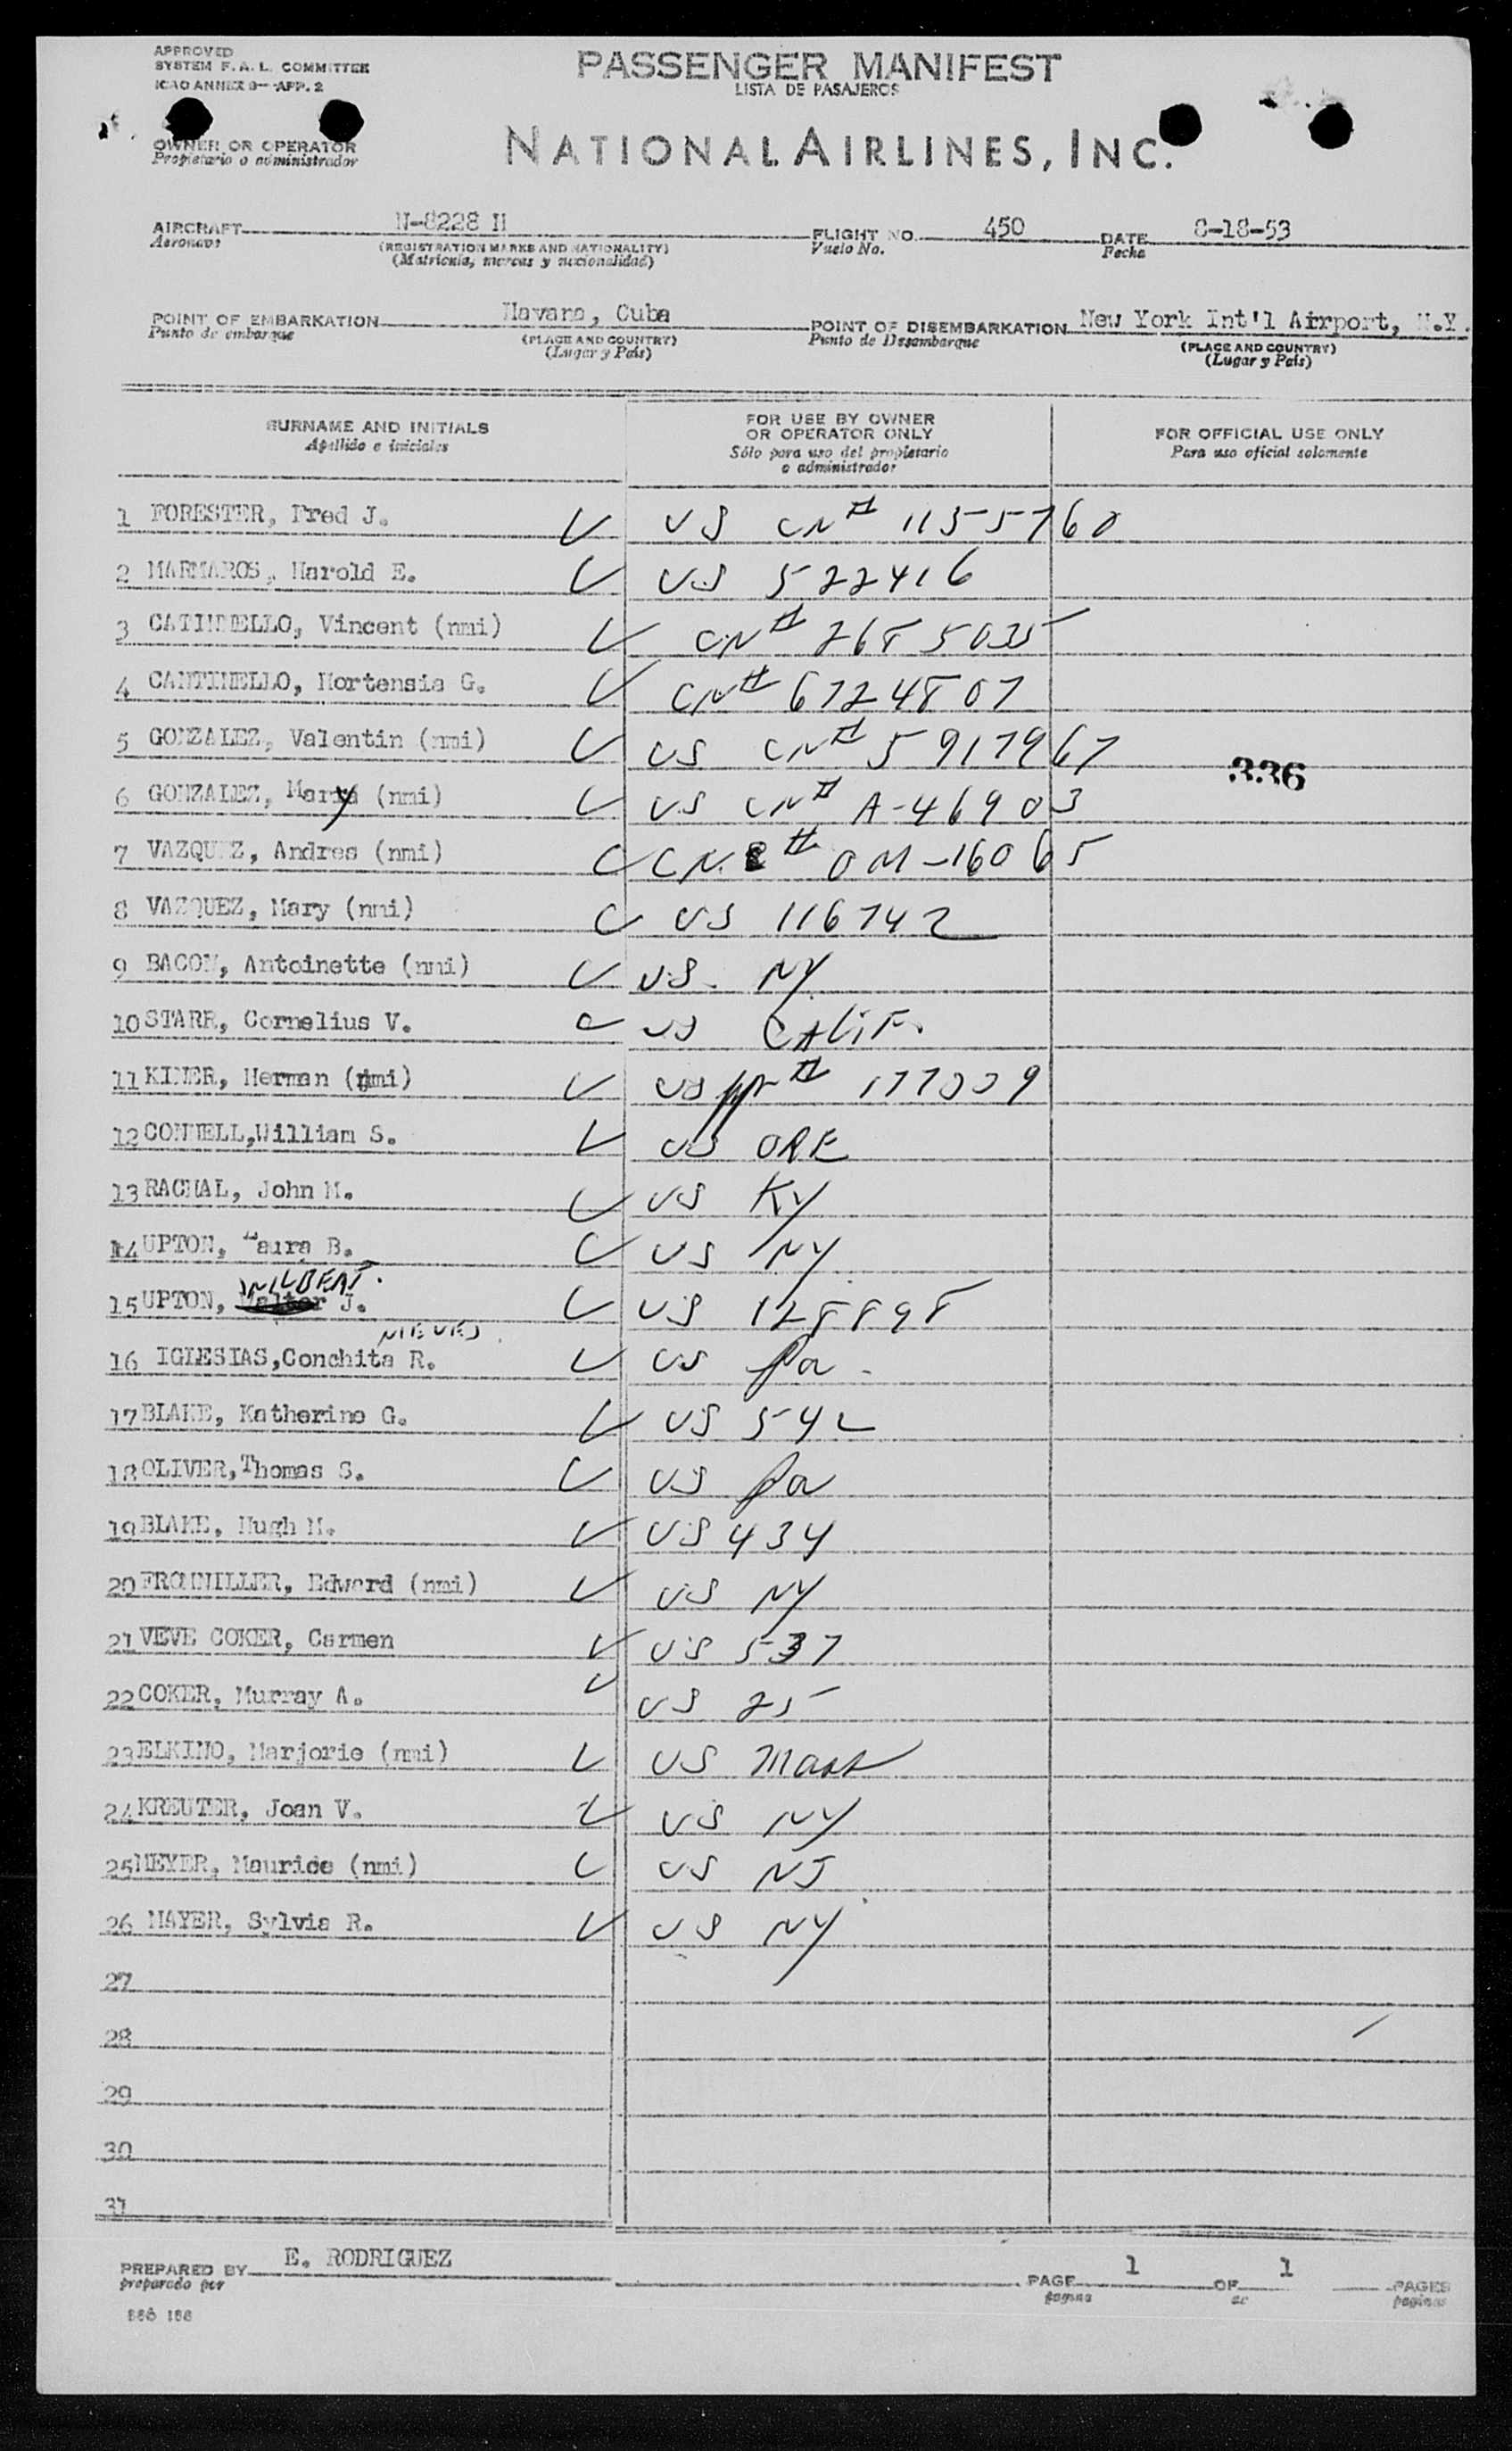 APPROVED
SYSTEM F.A.L. COMMITTEE
ICAO ANNEX 9-APP. 2
PASSENGER MANIFEST
LISTA DE PASAJEROS
OWNER OR OPERATOR
Propietario o administrador
NATIONAL AIRLINES, INC.
AIRCRAFT N-8228 H FLIGHT NO. 450 DATE 8-18-53
Aeronave (REGISTRATION MARKS AND NATIONALITY) Vuelo No. Fecha
(Matricula, marcas y nacionalidad)
POINT OF EMBARKATION Havana, Cuba POINT OF DISEMBARKATION New York Int'l Airport, N.Y.
Punto de embarque (PLACE AND COUNTRY) Punto de Desembarque (PLACE AND COUNTRY)
(Lugar y País) (Lugar y País)
SURNAME AND INITIALS FOR USE BY OWNER OR OPERATOR ONLY FOR OFFICIAL USE ONLY
Apellido e iniciales Sólo para uso del propietario o administrador Para uso oficial solamente
1 FORESTER, Fred J. US CN# 1155760
2 MARMAROS, Harold E. US 522416
3 CATINNELLO, Vincent (nmi) CN# 2685035
4 CANTINELLO, Hortensia G. CN# 6724807
5 GONZALEZ, Valentin (nmi) US CN# 5917967
336
6 GONZALEZ, Mary (nmi) US CN# A-46903
7 VAZQUEZ, Andres (nmi) CN# OM-16065
8 VAZQUEZ, Mary (nmi) US 116742
9 BACON, Antoinette (nmi) US. NY
10 STARR, Cornelius V. US CALIF.
11 KINER, Herman (nmi) US PP# 177009
12 CONNELL, William S. US ORE
13 RACHAL, John M. US KY
14 UPTON, Laura B. US NY
WILBERT.
15 UPTON, J. US 128898
NIEVES.
16 IGLESIAS, Conchita R. US Pa.
17 BLAKE, Katherine G. US 542
18 OLIVER, Thomas S. US Pa
19 BLAKE, Hugh M. US 434
20 FROMMILLER, Edward (nmi) US NY
21 VEVE COKER, Carmen US 537
22 COKER, Murray A. US 25
23 ELKINO, Marjorie (nmi) US Mass
24 KREUTER, Joan V. US NY
25 MEYER, Maurice (nmi) US NJ
26 MAYER, Sylvia R. US NY
27
28
29
30
31
PREPARED BY E. RODRIGUEZ PAGE 1 OF 1 PAGES
preparado por pagina de paginas